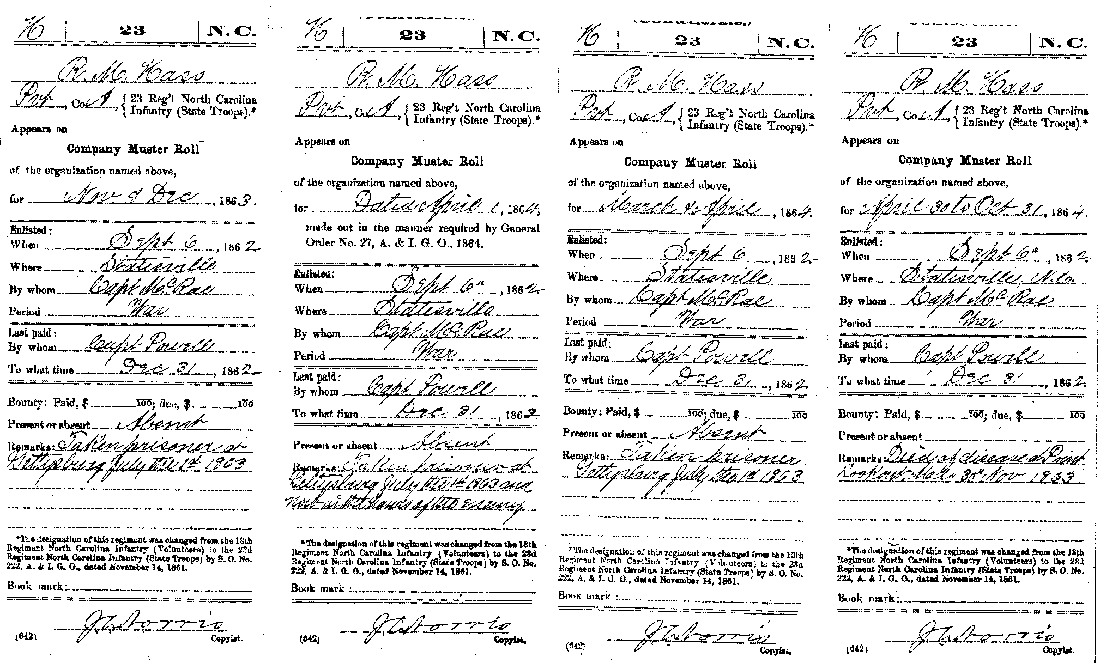 H 23 N.C.
R. M. Hass
Pvt, Co. A, { 23 Reg't North Carolina
Infantry (State Troops).*
Appears on
Company Muster Roll
of the organization named above,
for Nov & Dec, 1863.
Enlisted:
When Sept 6, 1862
Where Statesville
By whom Capt McRae
Period War
Last paid:
By whom Capt Powell
To what time Dec 31, 1862
Bounty: Paid, $ 100; due, $ 100
Present or absent Absent
Remarks: Taken prisoner at
Gettysburg July the 1st 1863
*The designation of this regiment was changed from the 13th
Regiment North Carolina Infantry (Volunteers) to the 23d
Regiment North Carolina Infantry (State Troops) by S. O. No.
222, A. & I. G. O., dated November 14, 1861.
Book mark:
(642) Copyist.
H 23 N.C.
R. M. Hass
Pvt, Co. A, { 23 Reg't North Carolina
Infantry (State Troops).*
Appears on
Company Muster Roll
of the organization named above,
for Dated April 1, 1864,
made out in the manner required by General
Order No. 27, A. & I. G. O., 1864.
Enlisted:
When Sept 6", 1862
Where Statesville
By whom Capt McRae
Period War
Last paid:
By whom Capt Powell
To what time Dec 31, 1862
Present or absent Absent
Remarks: Taken prisoner at
Gettysburg July the 1st 1863 and
now in the hands of the enemy
*The designation of this regiment was changed from the 13th
Regiment North Carolina Infantry (Volunteers) to the 23d
Regiment North Carolina Infantry (State Troops) by S. O. No.
222, A. & I. G. O., dated November 14, 1861.
Book mark:
(642) Copyist.
H 23 N.C.
R. M. Hass
Pvt, Co. A, { 23 Reg't North Carolina
Infantry (State Troops).*
Appears on
Company Muster Roll
of the organization named above,
for March & April, 1864.
Enlisted:
When Sept 6, 1862
Where Statesville
By whom Capt McRae
Period War
Last paid:
By whom Capt Powell
To what time Dec 31, 1862
Bounty: Paid, $ 100; due, $ 100
Present or absent Absent
Remarks: Taken prisoner
Gettysburg July the 1st 1863
*The designation of this regiment was changed from the 13th
Regiment North Carolina Infantry (Volunteers) to the 23d
Regiment North Carolina Infantry (State Troops) by S. O. No.
222, A. & I. G. O., dated November 14, 1861.
Book mark:
(642) Copyist.
H 23 N.C.
R. M. Hass
Pvt, Co. A, { 23 Reg't North Carolina
Infantry (State Troops).*
Appears on
Company Muster Roll
of the organization named above,
for April 30 to Oct 31, 1864.
Enlisted:
When Sept 6", 1862
Where Statesville N.C.
By whom Capt McRae
Period War
Last paid:
By whom Capt Powell
To what time Dec 31, 1862
Bounty: Paid, $ 100; due, $ 100
Present or absent
Remarks: Died of disease at Point
Lookout Md 30 Nov 1863
*The designation of this regiment was changed from the 13th
Regiment North Carolina Infantry (Volunteers) to the 23d
Regiment North Carolina Infantry (State Troops) by S. O. No.
222, A. & I. G. O., dated November 14, 1861.
Book mark:
(642) Copyist.